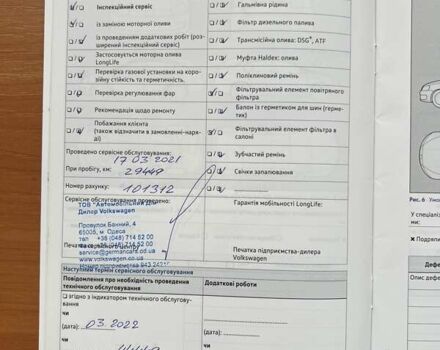 Інспекційний сервіс
із заміною моторної оливи
із проведенням додаткових робіт (розширений інспекційний сервіс)
Застосовується моторна олива LongLife
Перевірка газової установки на корозійну стійкість та герметичність.
Перевірка регулювання фар
Рекомендація щодо ремонту
Побажання клієнта
(також відзначити в замовленні-наряді)
Проведено сервісне обслуговування:
17 03 2021
При пробігу, км: 29449
Номер рахунку: 101312
Сервісне обслуговування проведено:
ТОВ "Автомобільний Дім
Дилер Volkswagen
Провулок Банний, 4
65005, м. Одеса
тел +38 (048) 714 52 00
+38 (048) 714 52 00
service@germancars.od.ua
www.volkswagen.co.ua
Номер підприємства
Наступний термін сервісного обслуговування
Повідомлення про необхідність проведення технічного обслуговування
згідно з індикатором технічного обслуговування
чи
(дата): 03.2022
чи
(дата):
Гальмівна рідина
Фільтр дизельного палива
Трансмісійна олива: DSG®, ATF
Муфта Haldex: олива
Поліклиновий ремінь
Фільтрувальний елемент повітряного фільтра
Балон із герметиком для шин (герметик)
Фільтрувальний елемент фільтра в салоні
Зубчастий ремінь
Свічки запалювання
Гарантія мобільності LongLife:
Печатка підприємства-дилера Volkswagen
Додаткові роботи
чи
чи
Рис. 6